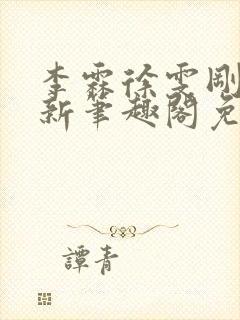 李霖徐雯剛
新筆趣閣免
譚青